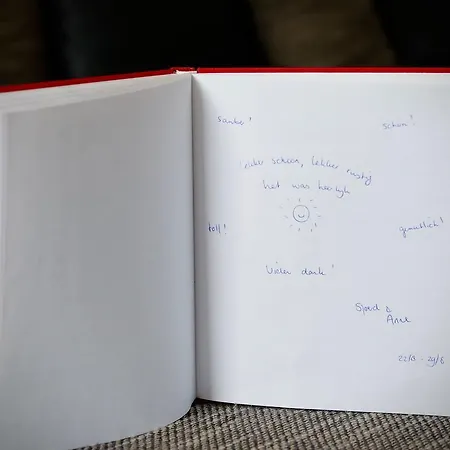 sauber!
schon!
lekker schoon, lekker rustig
het was heerlijk
toll!
gemütlich!
Vielen dank!
Sjoerd &
Anne
22/8 - 29/8